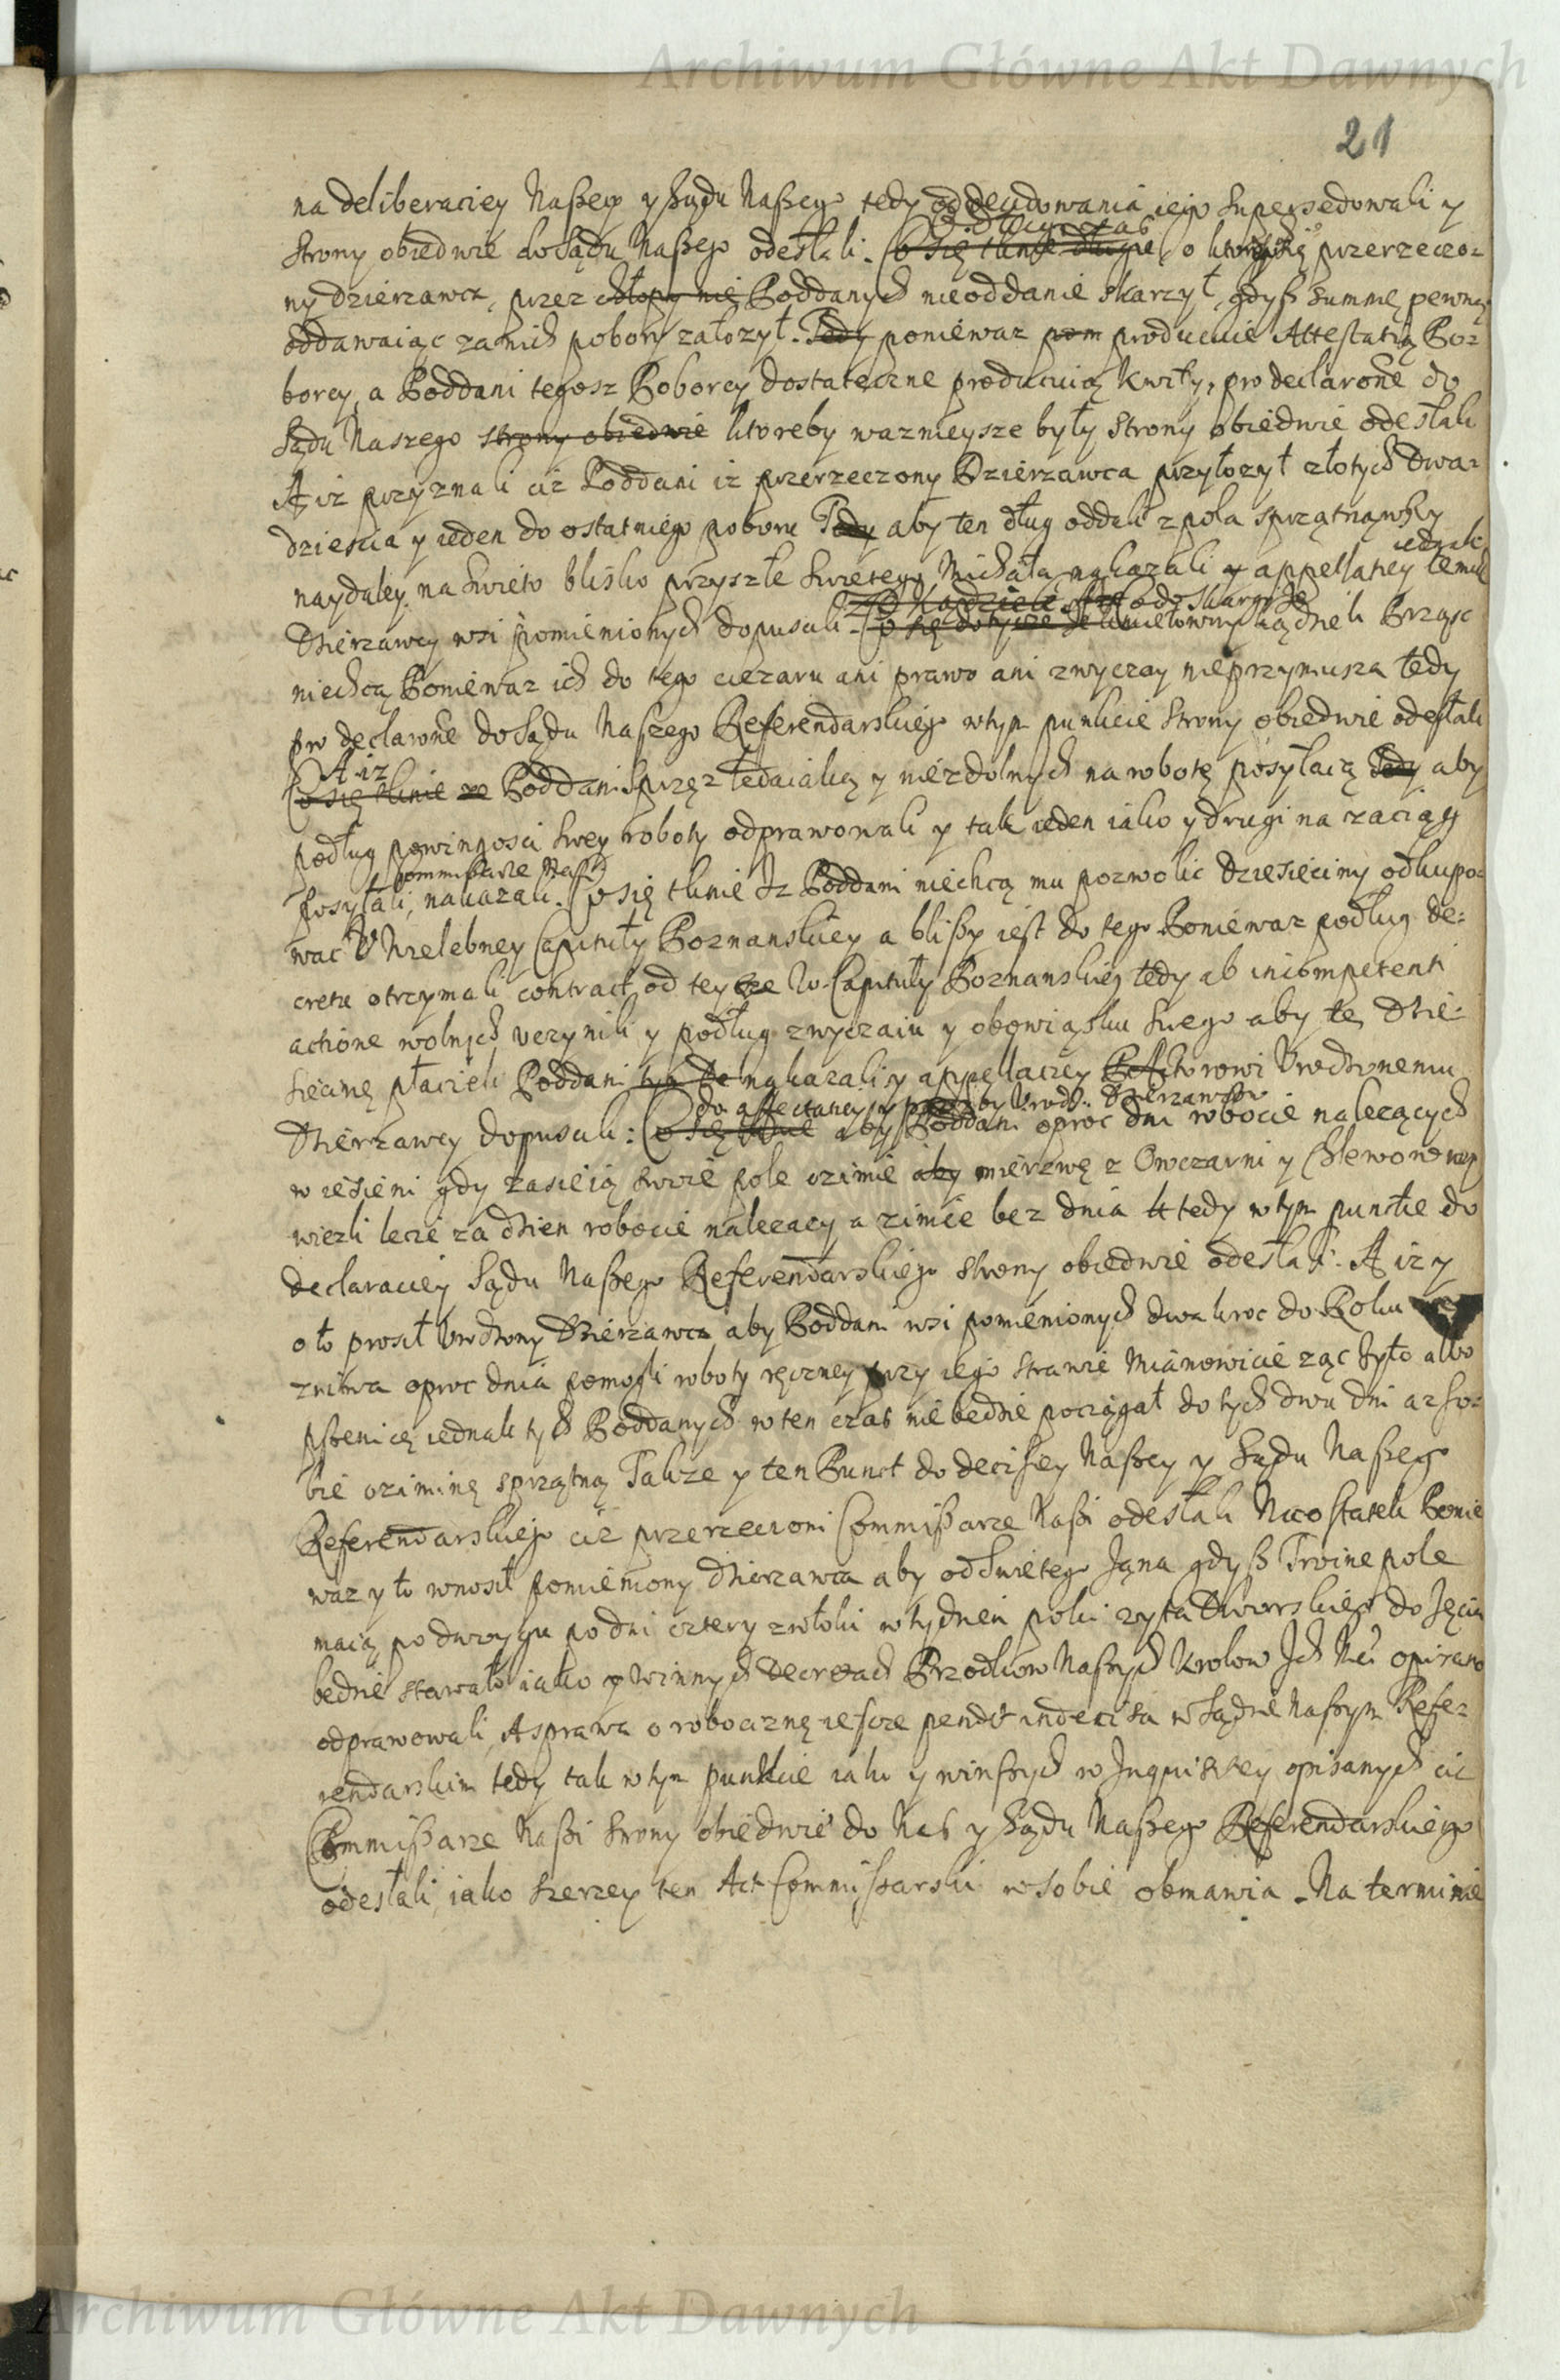 Archiwum Główne Akt Dawnych
21
na deliberaciey Naszey y Sądu Naszego tedy od decidowania iego supersedowali y
strony obiedwie do Sądu Naszego odesłali. Co się tknie długu o ktory się przerzeczo-
ny dzierzawca, przez chłopy nię Poddanych nieoddanie skarzył, gdysz summę pewną
oddawaiąc za nich pobory załozył. Tedy poniewaz pom producuie Attestatią Po-
borcy, a Poddani tegosz Poborcy dostateczne producuią kwity, pro declarõne do
Sądu Naszego strony obiedwie ktoreby waznieysze były strony obiedwie odesłali
A iz przyznali ciz Poddani iz przerzeczony Dzierzawca przyłozył złotych dwa-
dziescia y ieden do ostatniego poboru Tedy aby ten dług oddali z pola sprzątnąwszy
naydaley na Swięto blisko przyszłe Swiętego Michała nakazali y appellatiey temu
iednak
Dzierzawcy wsi pomienionych dopuscili.
Co się dotycze
niechcą Poniewaz ich do tego ciezaru ani prawo ani zwyczay nieprzymusza tedy
pro declarõne do Sądu Naszego Referendarskiego w tym punkcie strony obiedwie odesłali
A iz
Co się tknie ze Poddani sprzęz ledaiaką y niezdolnych na robotę posyłaią Tedy aby
podług powinnosci swey roboty odprawowali y tak ieden iako y drugi na zaciąg
Commissarze Naszi
posyłali, nakazali. Co się tknie Iz Poddani niechcą mu pozwolic dziesięciny odkupo-
wac U Wielebney Capituły Poznanskiey a blisszy iest do tego Poniewaz podług de-
cretu otrzymali contract od teyze W. Capituły Poznanskiey tedy ab incompetenti
actione wolnych uczynili y podług zwyczaiu y obowiąsku swego aby tę dzie-
sięcinę płacieli Poddani nakazali y appellaciey Actorowi Urodzonemu
Dzierzawcy dopuscili: Co się tknie aby Poddani oproc dni robocie nalezących
w iesieni gdy zasieią swoie pole ozimie aby mierzwę z Owczarni y Chlewow
wiezli lecie za dzien robocie nalezacy a zimie bez dnia tedy w tym punctie do
declaraciey Sądu Naszego Referendarskiego strony obiedwie odesłali. A iz y
o to prosił Urodzony Dzierzawca aby Poddani wsi pomienionych dwa kroc do Roku
zniwa oproc dnia pomogli roboty ręczney przy iego strawie Mianowicie ząc zyto albo
pszenicę iednak tych Poddanych w ten czas nie bedzie pociągał do tych dwu dni az so-
bie oziminę sprzątną Takze y ten Punct do decisiey Naszey y Sądu Naszego
Referendarskiego ciz przerzeczoni Commissarze Naszi odesłali Naostatek Ponie
waz y to wnosił pomieniony Dzierzawca aby od Swiętego Jana gdysz Troine pole
maią po dwoygu po dni cztery z włoki w tydzien poki zyta Dworskiego do Zęcia
bedzie stawało iako y w innych decretach Przodkow Naszych Krolow Ich Mci opisano
odprawowali, A sprawa o robociznę iescze pendet indecisa w Sądzie Naszym Refe-
rendarskim tedy tak w tym punkcie iako y w inszych w Inquisitiey opisanych ciz
Commissarze Naszi strony obiedwie do Nas y Sądu Naszego Referendarskiego
odesłali, iako szerzey ten Act Commissarski w sobie obmawia. Na terminie
Archiwum Główne Akt Dawnych